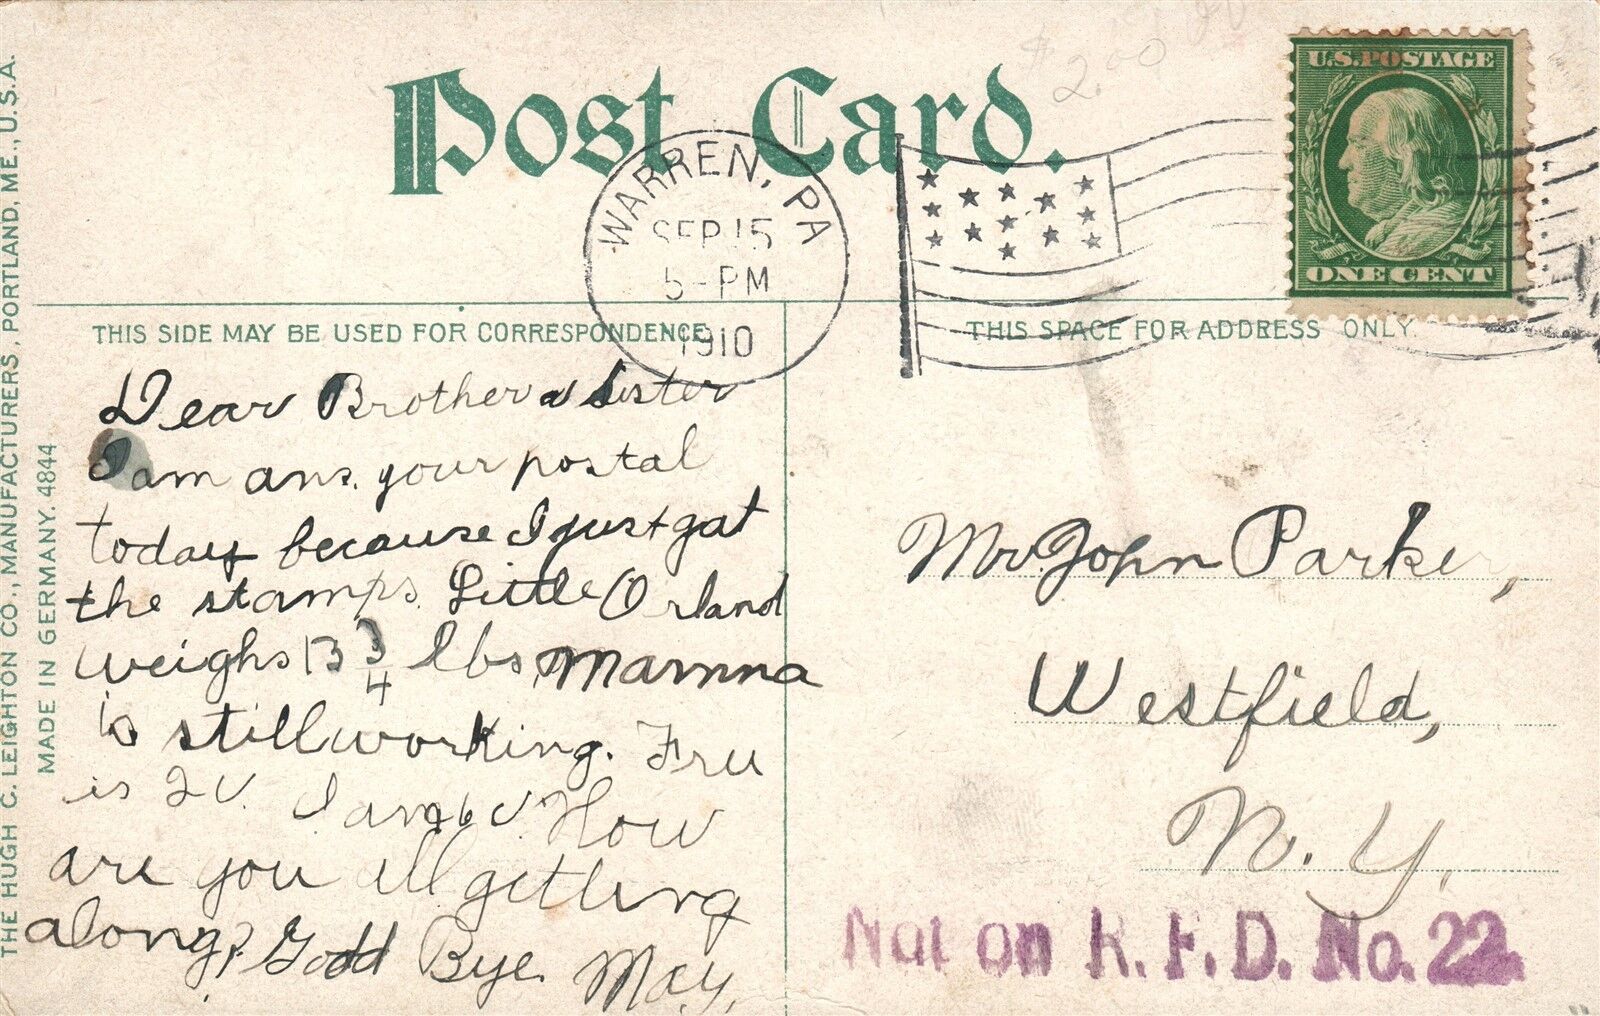 $2.00
Post Card.
U.S. POSTAGE
ONE CENT
WARREN, PA
SEP 15
5-PM
1910
THE HUGH C. LEIGHTON CO., MANUFACTURERS, PORTLAND, ME., U.S.A.
MADE IN GERMANY. 4844
THIS SIDE MAY BE USED FOR CORRESPONDENCE.
THIS SPACE FOR ADDRESS ONLY.
Dear Brother & Sister
I am ans. your postal
today because I just gat
the stamps. Little Orland
weighs 13 3/4 lbs Mamma
is still working.
is I am How
are you all getting
along? Good Bye. May.
Mr John Parker,
Westfield,
N. Y.
Not on R. F. D. No. 22